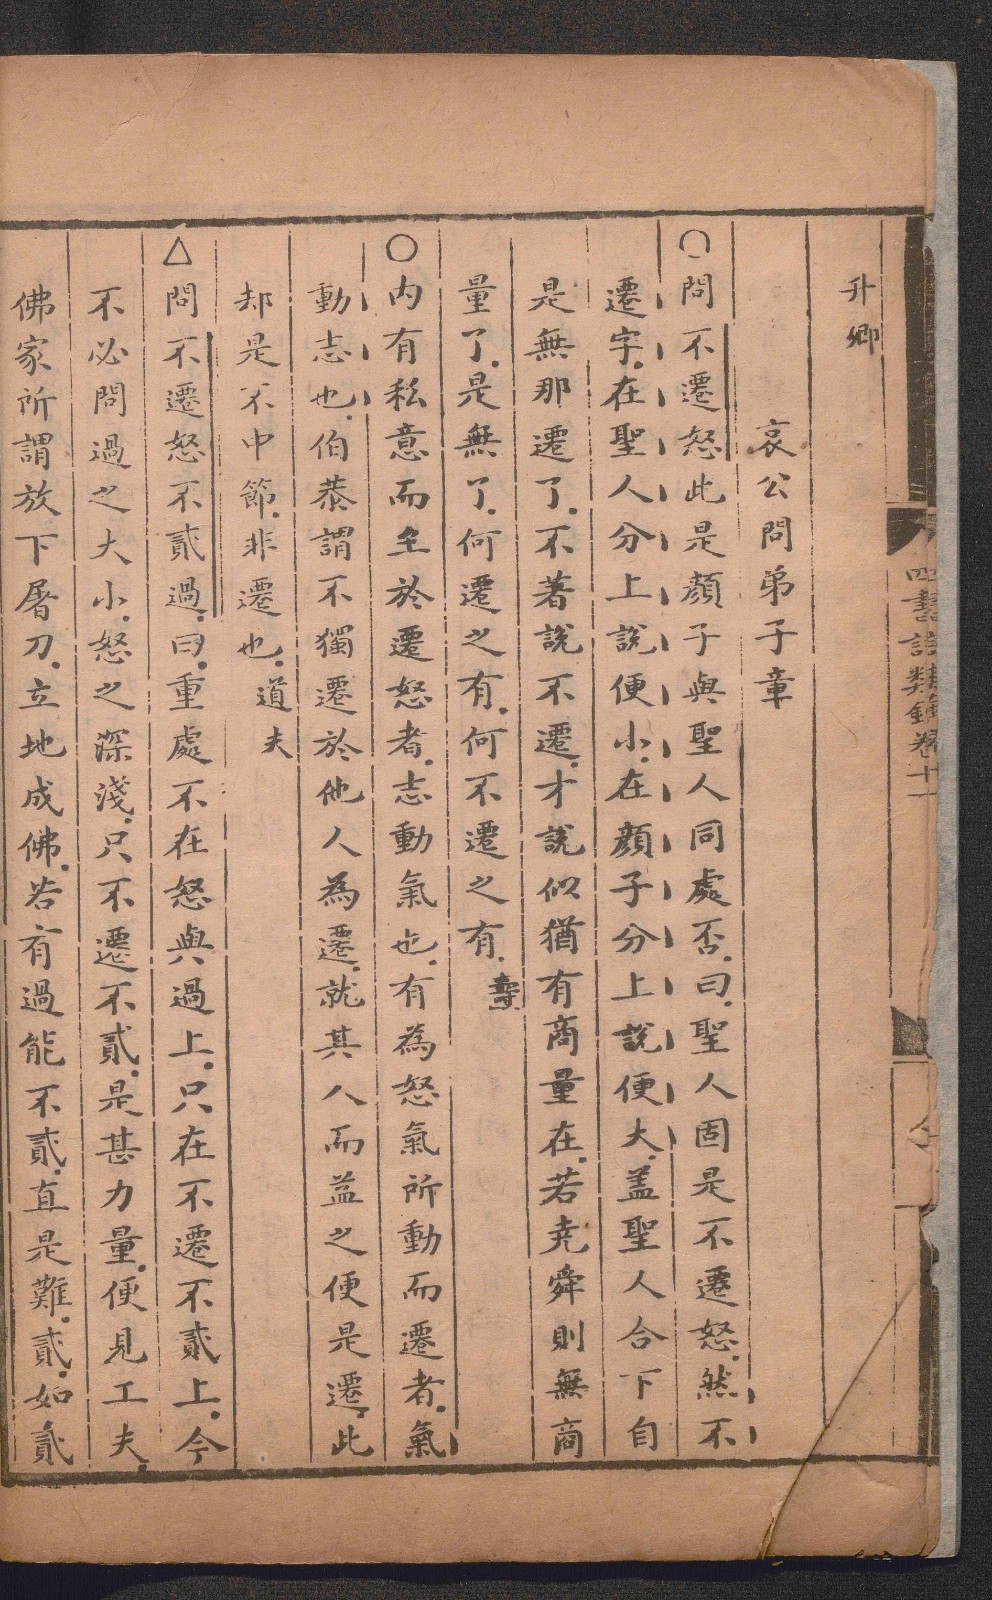 升卿
哀公問弟子章
○問不遷怒此是顏子與聖人同處否曰聖人固是不遷怒然不
遷字在聖人分上說便小在顏子分上說便大蓋聖人合下自
是無那遷了不著說不遷才說似猶有商量在若堯舜則無商
量了是無了何遷之有何不遷之有 㝷
○內有私意而至於遷怒者志動氣也有為怒氣所動而遷者氣
動志也伯恭謂不獨遷於他人為遷就其人而益之便是遷此
却是不中節非遷也 道夫
△問不遷怒不貳過曰重處不在怒與過上只在不遷不貳上今
不必問過之大小怒之深淺只不遷不貳是甚力量便見工夫
佛家所謂放下屠刀立地成佛若有過能不貳直是難貳如貳
四書語類鈔卷十一